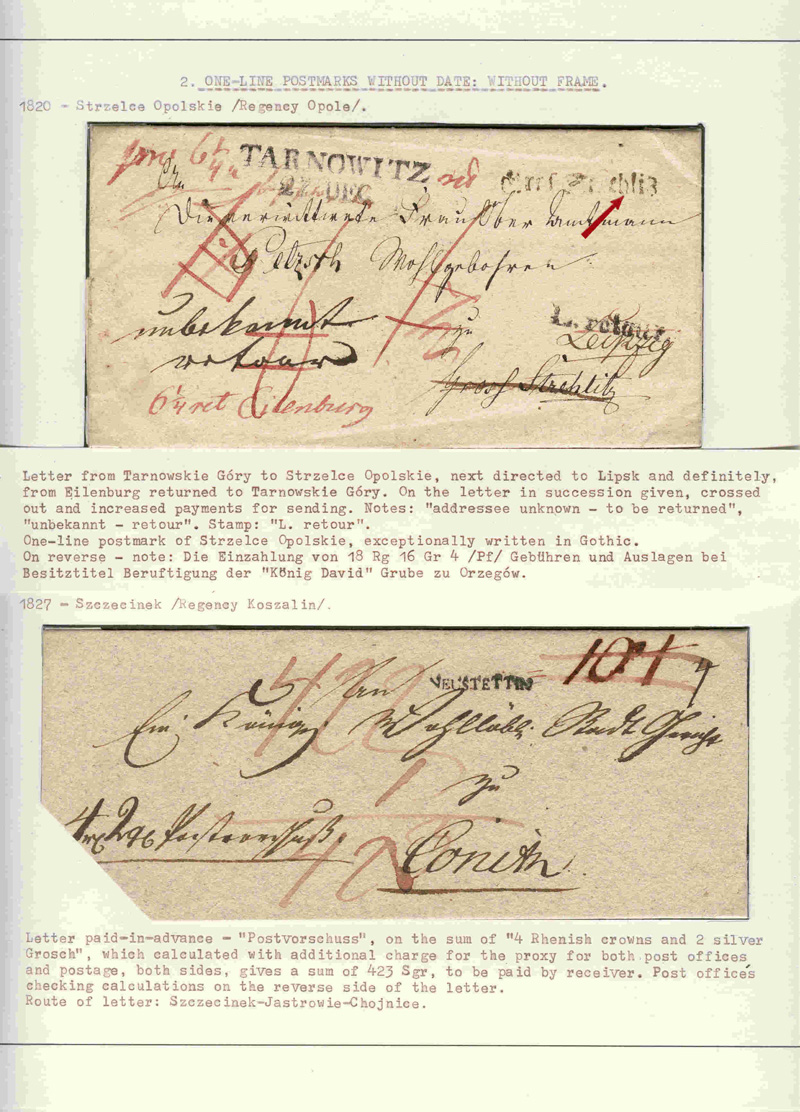 2. ONE-LINE POSTMARKS WITHOUT DATE: WITHOUT FRAME.
1820 - Strzelce Opolskie /Regency Opole/.
6¼
TARNOWITZ
27 DEC
Gros Strehlitz
Die Frau Ober Amtmann
Petzsch Wohlgebohren
unbekannt
zu
L. retour
Leipzig
retour
Gross Strehlitz
6¼ ret Eilenburg
Letter from Tarnowskie Góry to Strzelce Opolskie, next directed to Lipsk and definitely,
from Eilenburg returned to Tarnowskie Góry. On the letter in succession given, crossed
out and increased payments for sending. Notes: "addressee unknown - to be returned",
"unbekannt - retour". Stamp: "L. retour".
One-line postmark of Strzelce Opolskie, exceptionally written in Gothic.
On reverse - note: Die Einzahlung von 18 Rg 16 Gr 4 /Pf/ Gebühren und Auslagen bei
Besitztitel Beruftigung der "König David" Grube zu Orzegów.
1827 - Szczecinek /Regency Koszalin/.
An
NEUSTETTIN
Ein Königl Wohllöbl. Stadt Gericht
zu
Postvorschuß
Conitz
Letter paid-in-advance - "Postvorschuss", on the sum of "4 Rhenish crowns and 2 silver
Grosch", which calculated with additional charge for the proxy for both post offices
and postage, both sides, gives a sum of 423 Sgr, to be paid by receiver. Post offices
checking calculations on the reverse side of the letter.
Route of letter: Szczecinek-Jastrowie-Chojnice.